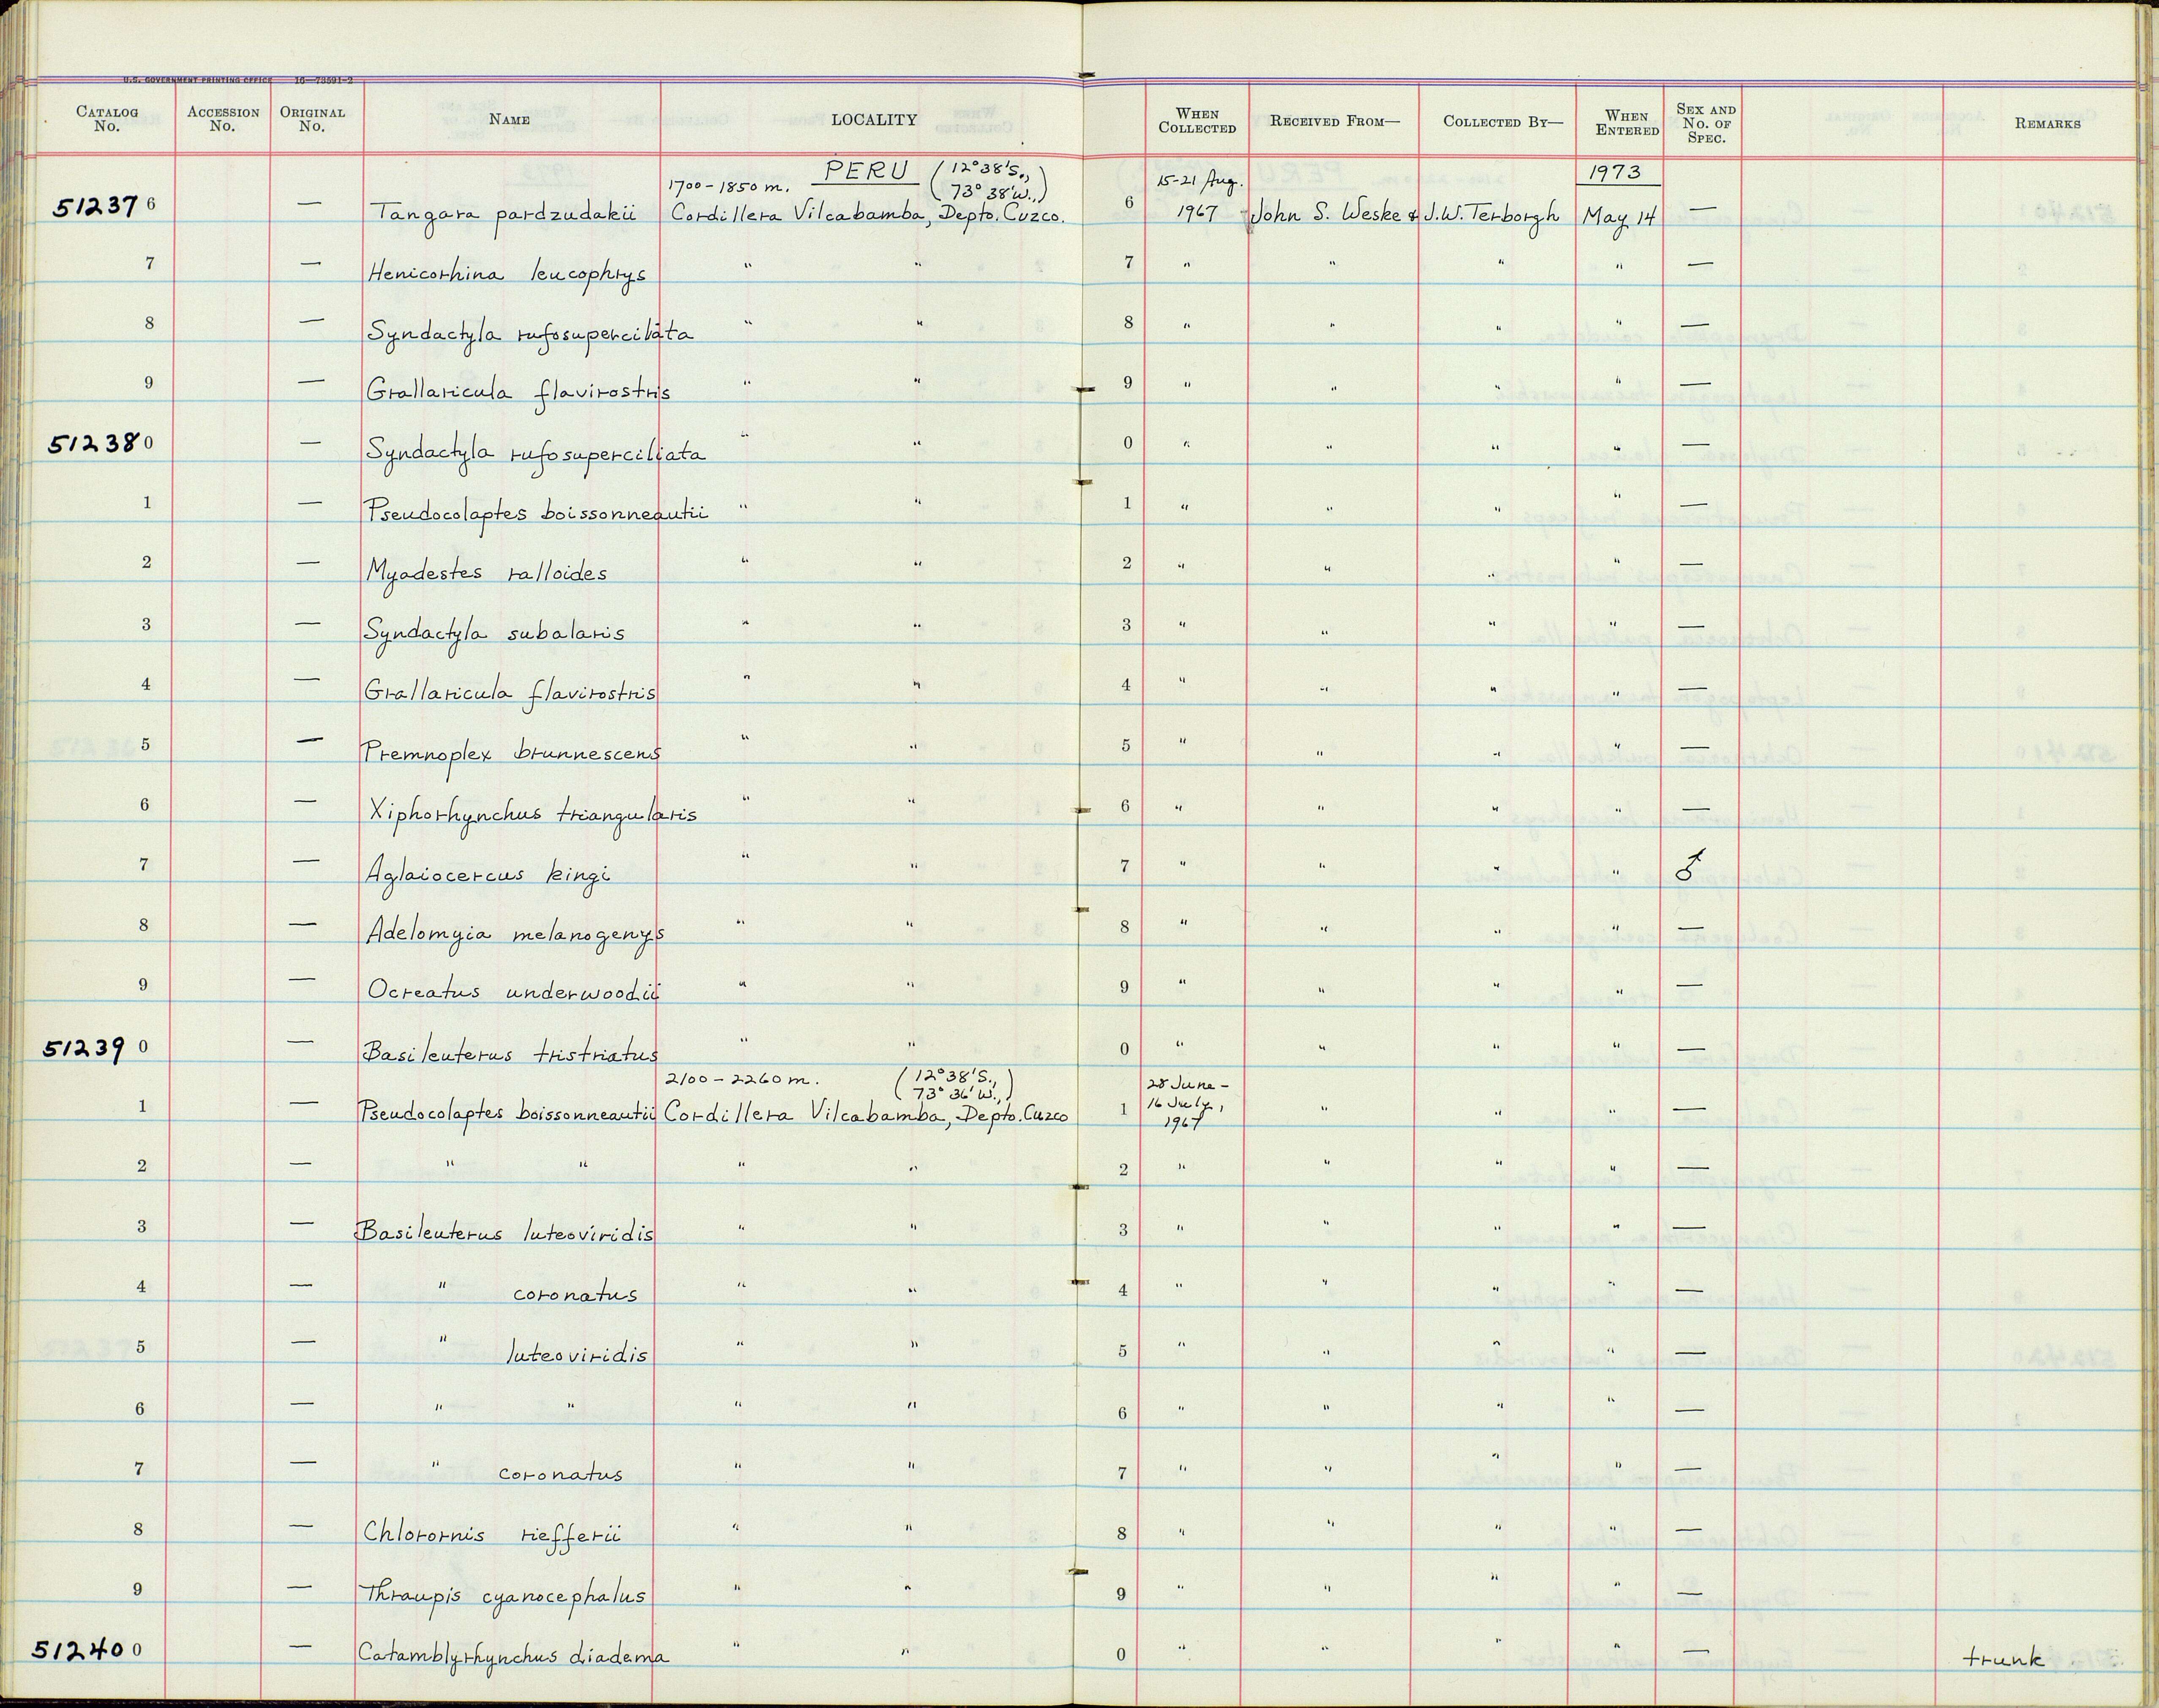 U.S. GOVERNMENT PRINTING OFFICE 16—73591-2
CATALOG No. ACCESSION No. ORIGINAL No. NAME LOCALITY WHEN COLLECTED RECEIVED FROM— COLLECTED BY— WHEN ENTERED SEX AND No. OF SPEC. REMARKS
PERU (12°38'S., 73°38'W.,) 1973
1700-1850 m. 15-21 Aug.
512376 — Tangara pardzudakii Cordillera Vilcabamba, Depto. Cuzco. 6 1967 John S. Weske & J.W. Terborgh May 14 —
7 — Henicorhina leucophrys " " 7 " " " " —
8 — Syndactyla rufosuperciliata " " 8 " " " " —
9 — Grallaricula flavirostris " " 9 " " " " —
512380 — Syndactyla rufosuperciliata " " 0 " " " " —
1 — Pseudocolaptes boissonneautii " " 1 " " " " —
2 — Myadestes ralloides " " 2 " " " " —
3 — Syndactyla subalaris " " 3 " " " " —
4 — Grallaricula flavirostris " " 4 " " " " —
5 — Premnoplex brunnescens " " 5 " " " " —
6 — Xiphorhynchus triangularis " " 6 " " " " —
7 — Aglaiocercus kingi " " 7 " " " " ♂
8 — Adelomyia melanogenys " " 8 " " " " —
9 — Ocreatus underwoodii " " 9 " " " " —
512390 — Basileuterus tristriatus " " 0 " " " " —
2100-2260 m. (12°38'S., 73°36'W.,) 28 June -
1 — Pseudocolaptes boissonneautii Cordillera Vilcabamba, Depto. Cuzco 1 16 July, 1967 " " " —
2 — " " " " 2 " " " " —
3 — Basileuterus luteoviridis " " 3 " " " " —
4 — " coronatus " " 4 " " " " —
5 — " luteoviridis " " 5 " " " " —
6 — " " " " 6 " " " " —
7 — " coronatus " " 7 " " " " —
8 — Chlorornis riefferii " " 8 " " " " —
9 — Thraupis cyanocephalus " " 9 " " " " —
512400 — Catamblyrhynchus diadema " " 0 " " " " — trunk